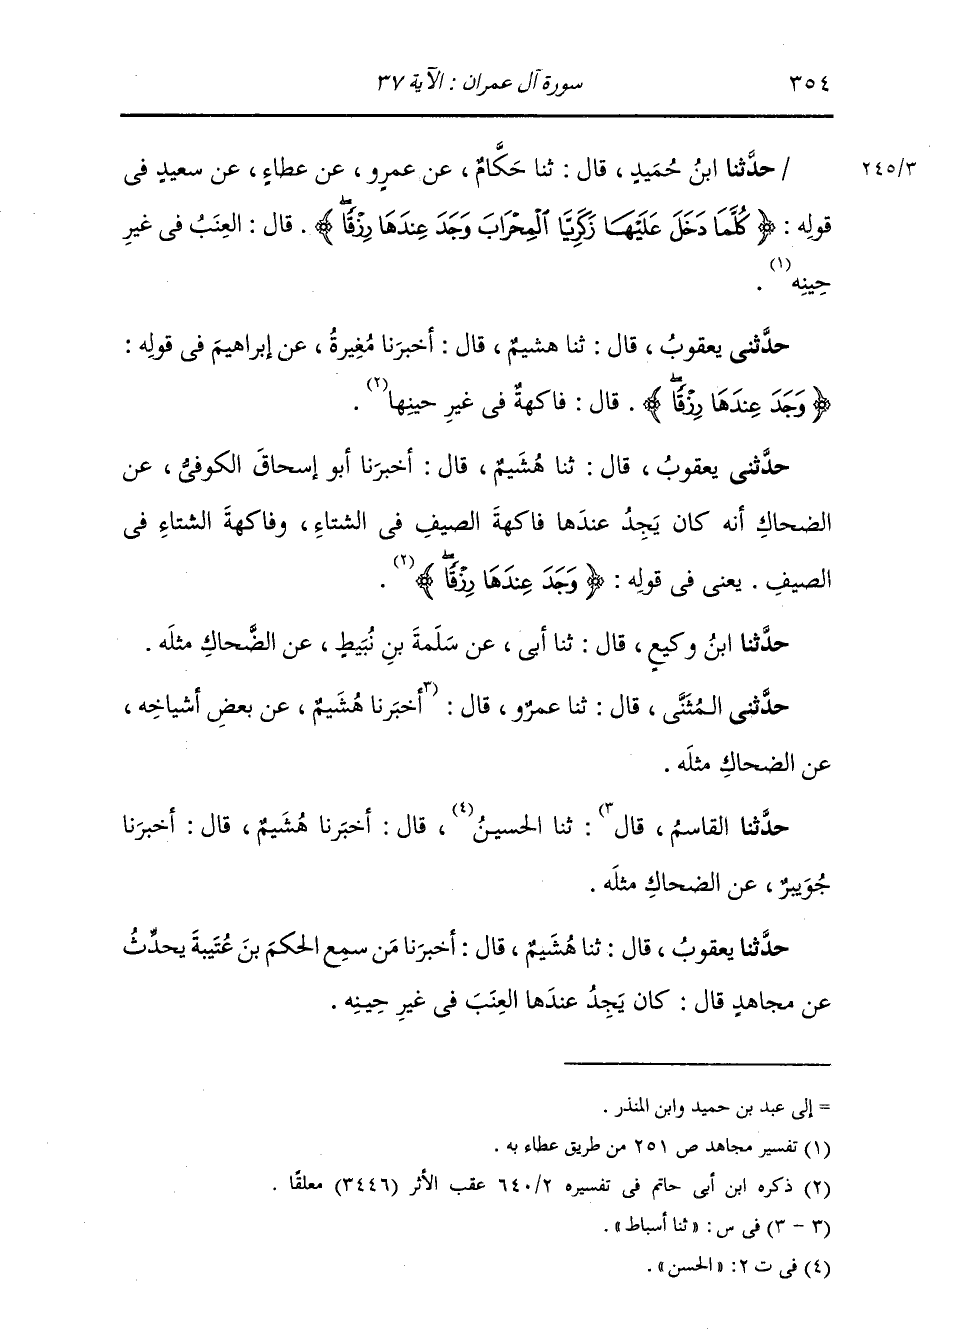 ٣٥٤ سورة آل عمران : الآية ٣٧
٢٤٥/٣ / حدَّثنا ابنُ حُمَيدٍ ، قال : ثنا حَكَّامٌ ، عن عمرٍو ، عن عطاءٍ ، عن سعيدٍ فى
قولِه : ﴿ كُلَّمَا دَخَلَ عَلَيْهَا زَكَرِيَّا ٱلْمِحْرَابَ وَجَدَ عِندَهَا رِزْقًا ۖ ﴾ . قال : العِنَبُ فى غيرِ
حِينِه (١) .
حدَّثنى يعقوبُ ، قال : ثنا هشيمٌ ، قال : أخبرَنا مُغِيرةُ ، عن إبراهيمَ فى قولِه :
﴿ وَجَدَ عِندَهَا رِزْقًا ۖ ﴾ . قال : فاكهةٌ فى غيرِ حينِها (٢) .
حدَّثنى يعقوبُ ، قال : ثنا هُشَيمٌ ، قال : أخبرَنا أبو إسحاقَ الكوفىُّ ، عن
الضحاكِ أنه كان يَجِدُ عندَها فاكهةَ الصيفِ فى الشتاءِ ، وفاكهةَ الشتاءِ فى
الصيفِ . يعنى فى قولِه : ﴿ وَجَدَ عِندَهَا رِزْقًا ۖ ﴾ (٢) .
حدَّثنا ابنُ وكيعٍ ، قال : ثنا أبى ، عن سَلَمةَ بنِ نُبَيطٍ ، عن الضَّحاكِ مثلَه .
حدَّثنى المُثَنَّى ، قال : ثنا عمرٌو ، قال : (٣ أخبَرنا هُشَيمٌ ، عن بعضِ أشياخِه ،
عن الضحاكِ مثلَه .
حدَّثنا القاسمُ ، قال ٣) : ثنا الحسينُ (٤) ، قال : أخبَرنا هُشَيمٌ ، قال : أخبرَنا
جُوَيبرٌ ، عن الضحاكِ مثلَه .
حدَّثنا يعقوبُ ، قال : ثنا هُشَيمٌ ، قال : أخبرَنا مَن سمِع الحكمَ بنَ عُتَيبةَ يحدِّثُ
عن مجاهدٍ قال : كان يَجِدُ عندَها العِنَبَ فى غيرِ حِينِه .
= إلى عبد بن حميد وابن المنذر .
(١) تفسير مجاهد ص ٢٥١ من طريق عطاء به .
(٢) ذكره ابن أبى حاتم فى تفسيره ٦٤٠/٢ عقب الأثر (٣٤٤٦) معلقًا .
(٣ - ٣) فى س : « ثنا أسباط » .
(٤) فى ت ٢ : « الحسن » .